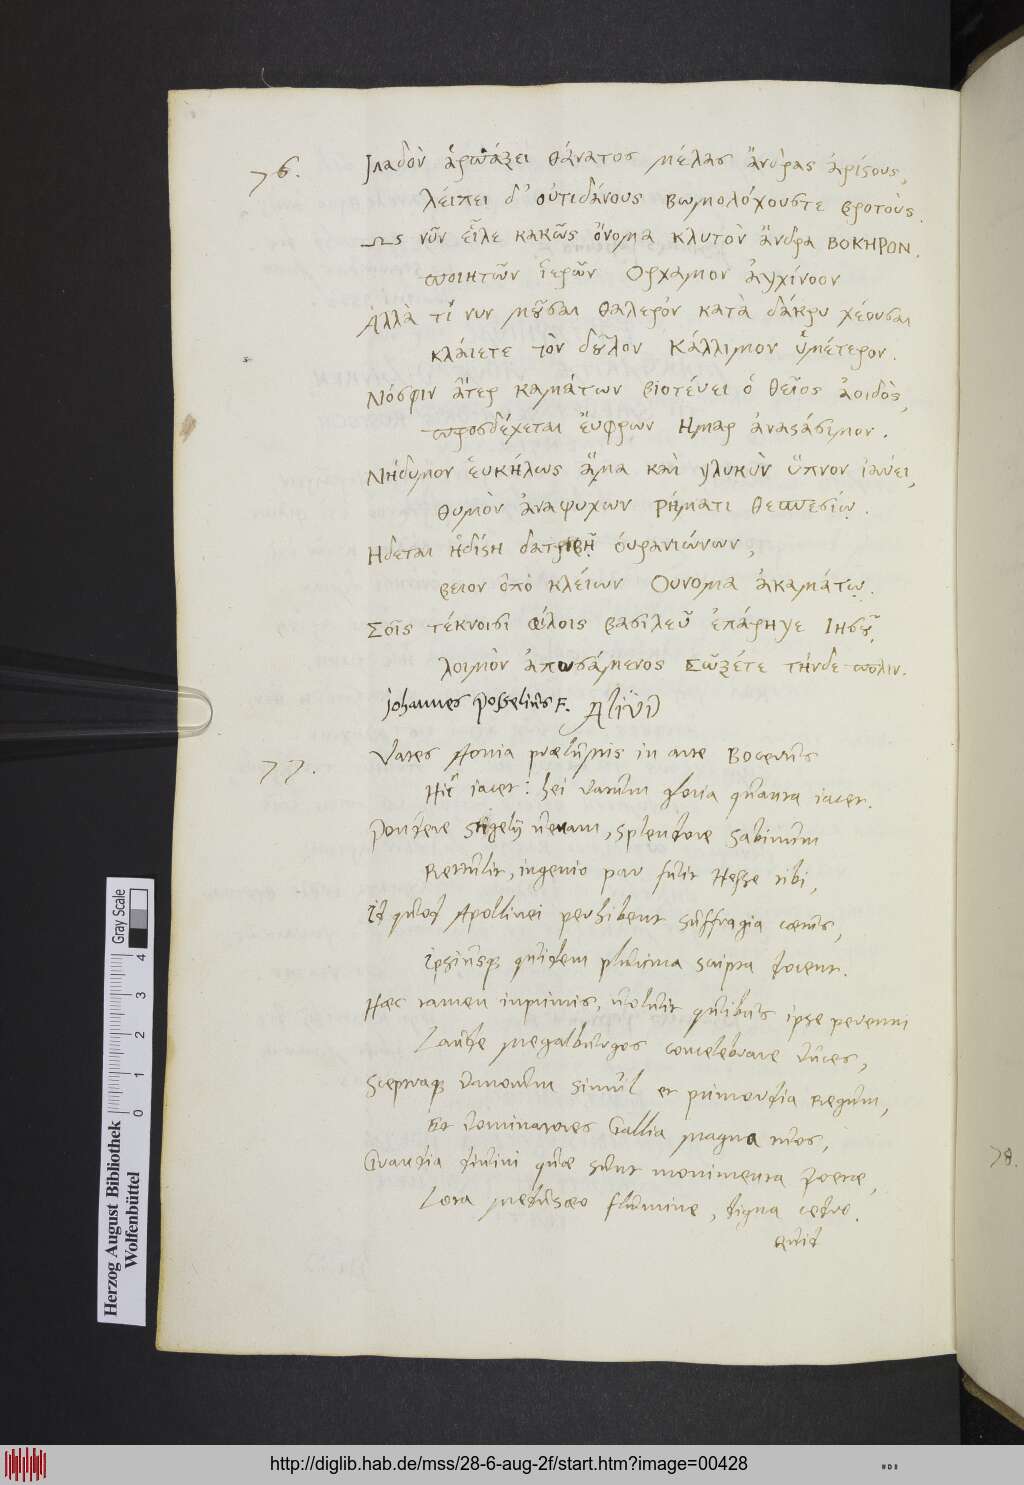 76.
Ἰλαδὸν ἁρπάζει θάνατος μέλας ἄνδρας ἀρίςους,
λείπει δ' οὐτιδάνους βωμολόχουςτε βροτοὺς.
Ως νῦν εἷλε κακῶς ὄνομα κλυτὸν ἄνδρα ΒΟΚΗΡΟΝ
ποιητῶν ἱερῶν Ορχαμον ἀγχίνοον
Ἀλλὰ τί νυν μοῦσαι θαλερόν κατὰ δάκρυ χέουσαι
κλάιετε τὸν δοῦλον Κάλλιμον ὑμέτερον.
Νόσφιν ἄτερ καμάτων βιοτέυει ὁ θεῖος ἀοιδὸς,
προσδέχεται ἔυφρων Ημαρ ἀναςάσιμον.
Νήδυμον ἑυκήλως ἅμα καὶ γλυκὺν ὕπνον ἰαύει,
θυμὸν ἀναψυχων Ρήματι θεσπεσίῳ.
Ηδεται ἡδίςη ὀυρανιώνων,
θειον ὁπὸ κλέιων Ουνομα ἀκαμάτῳ.
Σοῖς τέκνοισι φίλοις βασιλεῦ ἐπάρηγε Ιησοῦ,
λοιμὸν ἀπωσάμενος Σώζετε τήνδε πόλιν.
Johannes Posselius F.
Aliud
77.
Vates Aonia praelustris in arte Bocerus
Hic iacet: hei vatum gloria quanta iacet.
Pondere Stigelij venam, splendore Sabinum
Rettulit, ingenio par fuit Hesse tibi,
Id quod Apollinei perhibent suffragia coetus,
Ipsiusque quidem plurima scripta docent.
Haec tamen inprimis, voluit quibus ipse perenni
Laude Megalburgos concelebrare duces,
Sceptraque Danorum simul et primordia Regum,
Et dominatores Gallia magna tuos,
Grandia divini quae sunt monimenta Poetae,
Lota Medusaeo flumine, digna cedro.
Quid
78.
Herzog August Bibliothek
Wolfenbüttel
0 1 2 3 4
Gray Scale
http://diglib.hab.de/mss/28-6-aug-2f/start.htm?image=00428